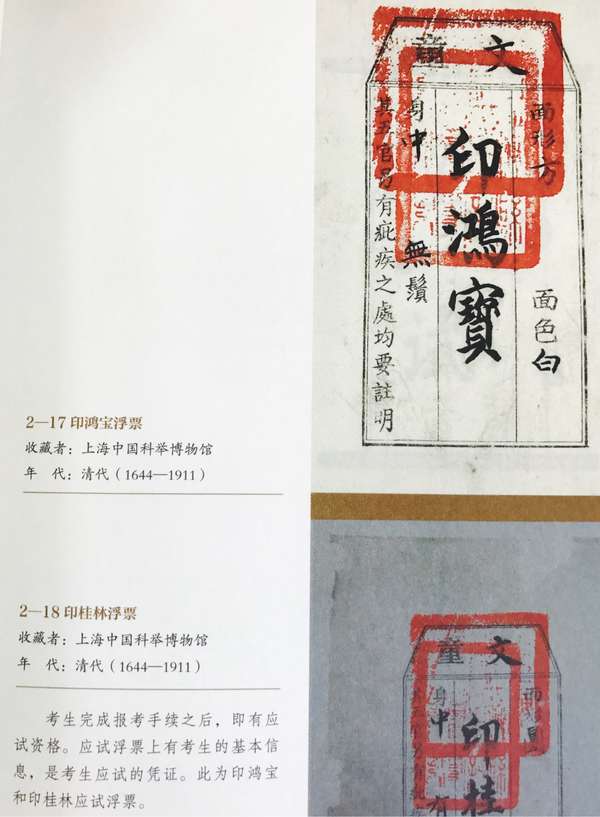 文童
面形方
面色白
印鴻寶
身中
無鬚
其五官另有疵疾之處均要註明
2—17 印鸿宝浮票
收藏者：上海中国科举博物馆
年 代：清代（1644—1911）
2—18 印桂林浮票
收藏者：上海中国科举博物馆
年 代：清代（1644—1911）
考生完成报考手续之后，即有应
试资格。应试浮票上有考生的基本信
息，是考生应试的凭证。此为印鸿宝
和印桂林应试浮票。
文童
面形
印桂
身中
有